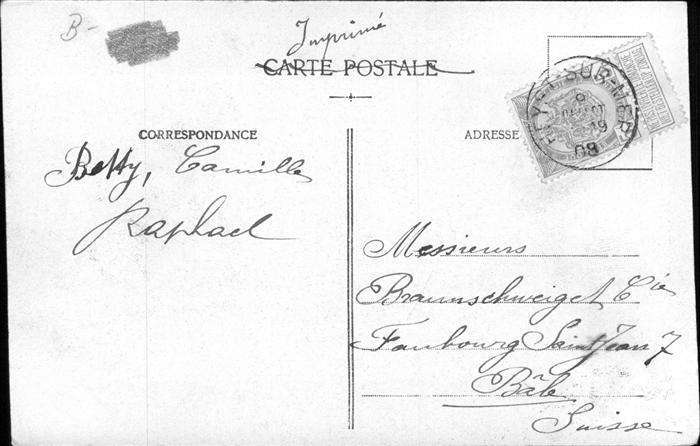 B-
Imprimé
CARTE POSTALE
CORRESPONDANCE
ADRESSE
SUR-MER
08
Betty, Camille
Raphael
Messieurs
Braunschweig et Cie
Faubourg Saint Jean 7
Bâle
Suisse